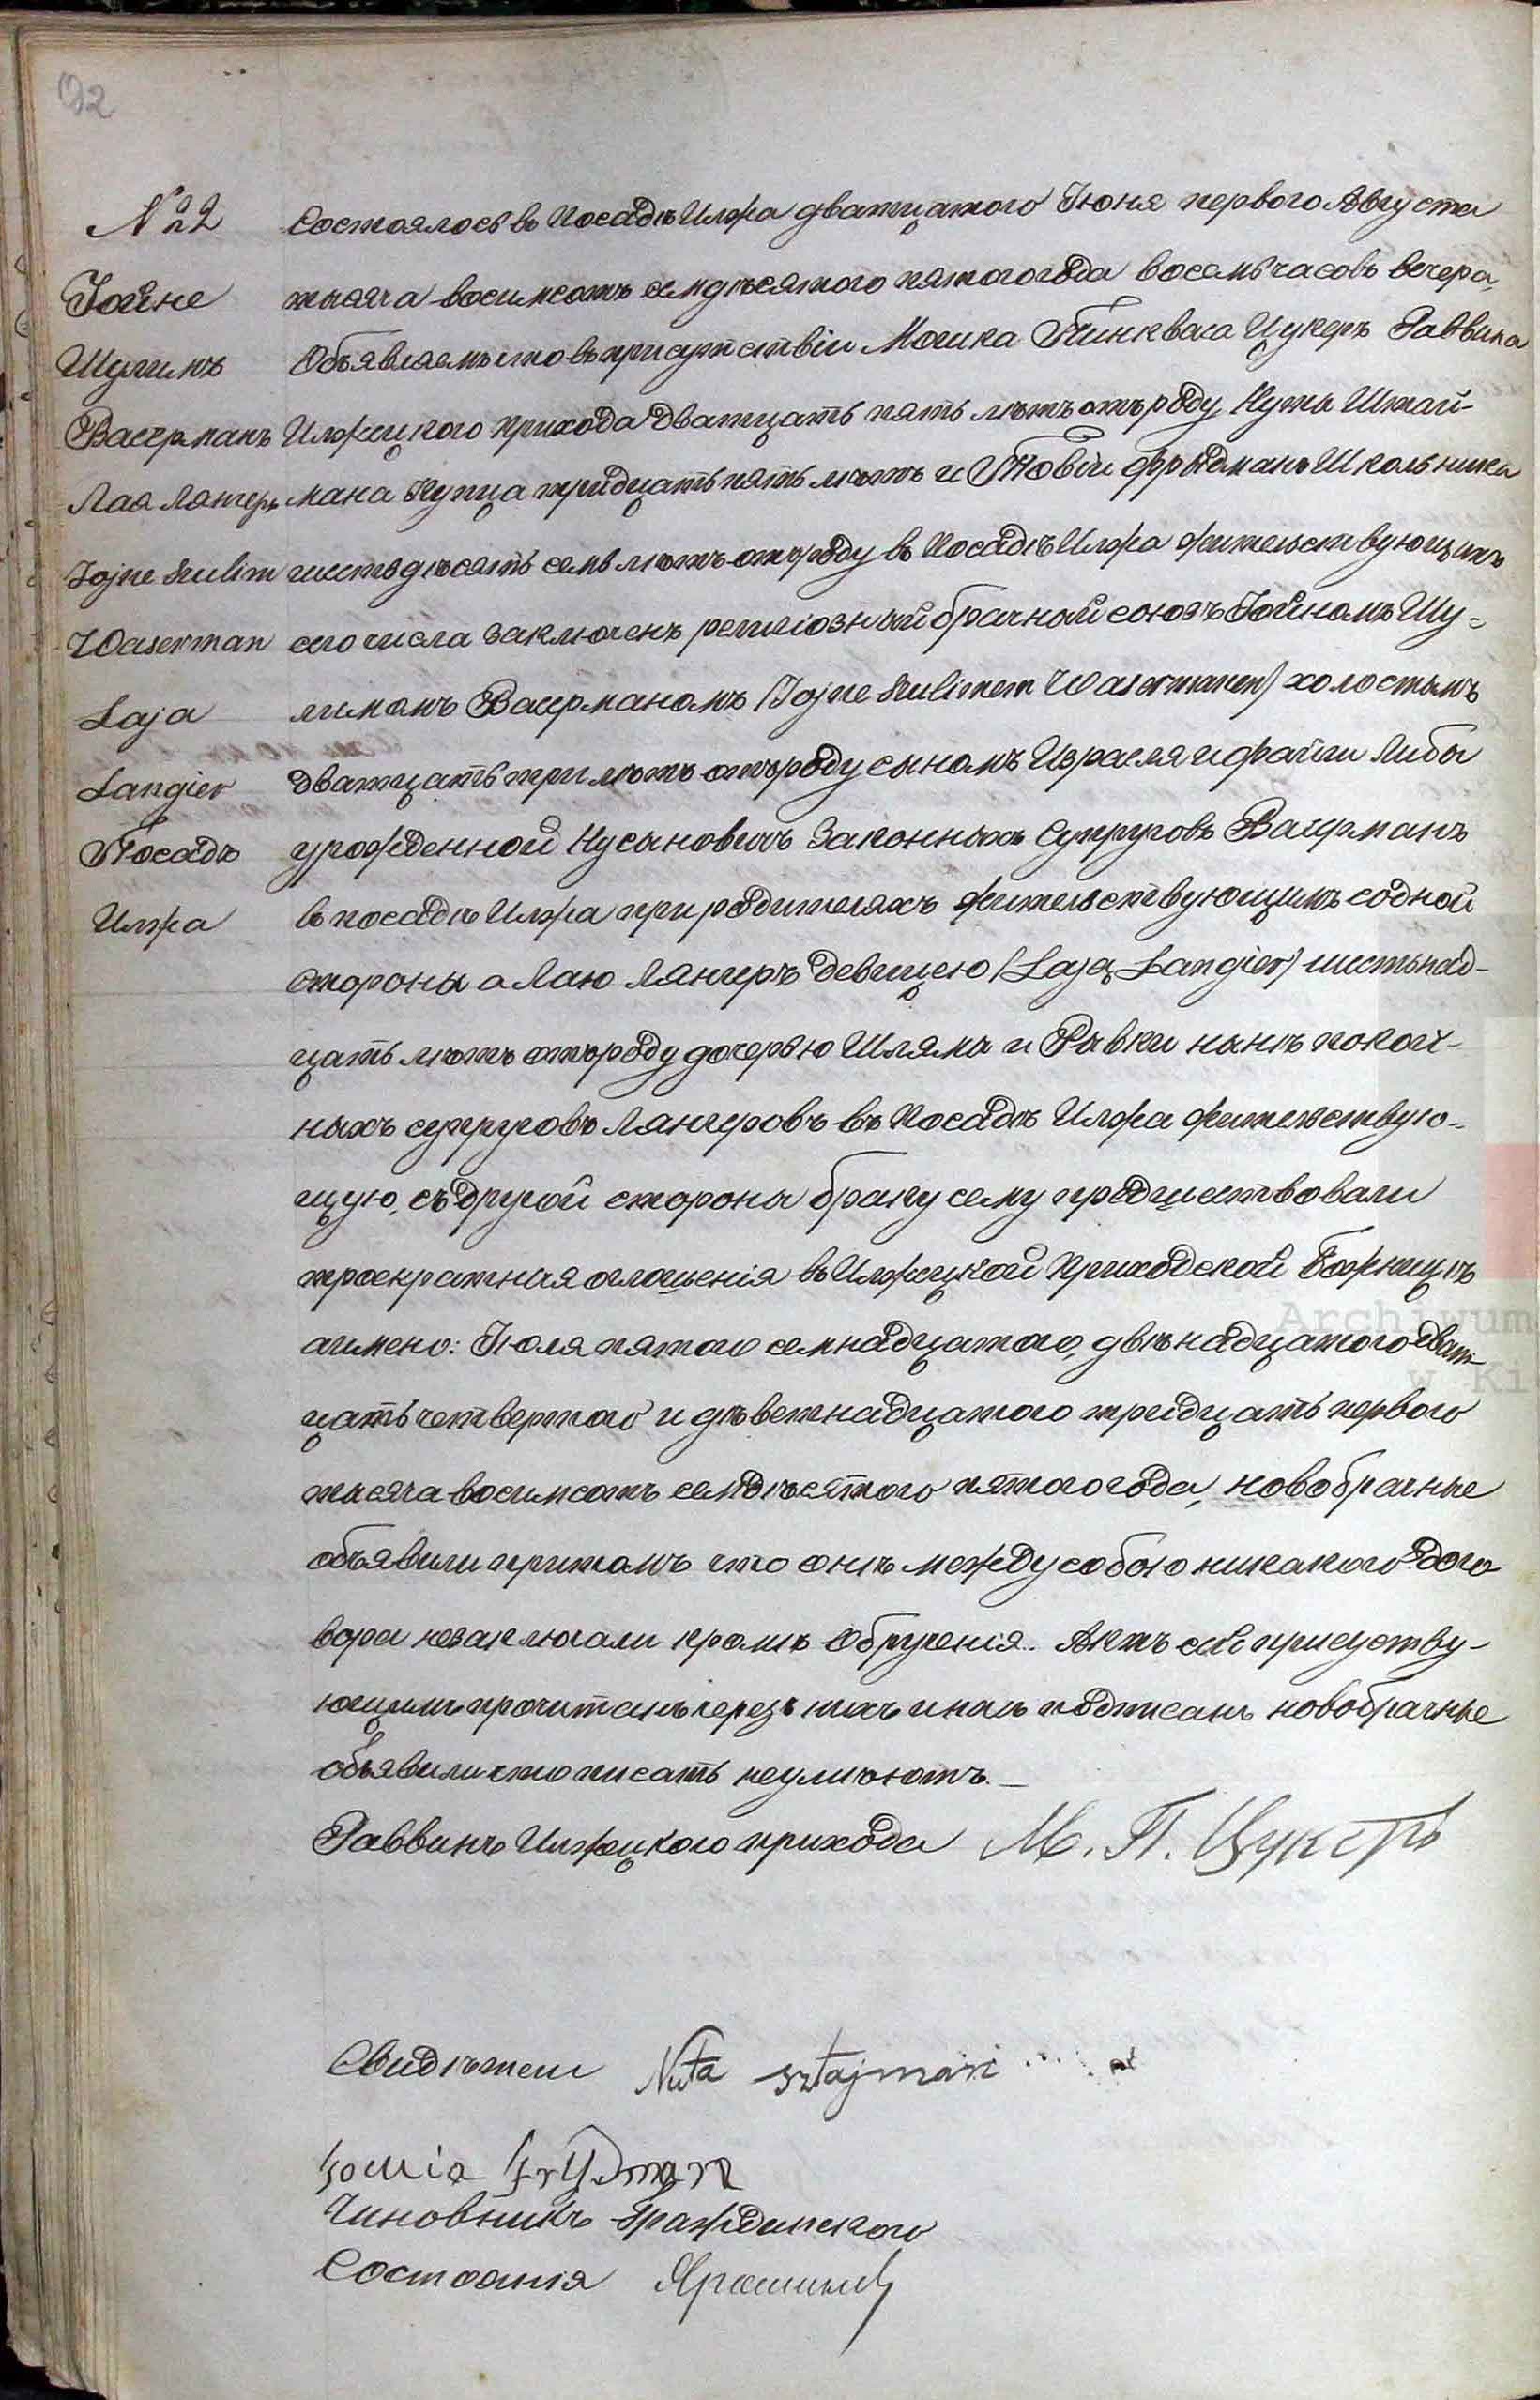 92
№ 22
Іойне
Шулимъ
Васерманъ
Лая Лянгеръ
Jojne Szulim
Waserman
Laja
Langier
Посадъ
Илжа
Состоялось въ Посадѣ Илжа дватцатого Іюня первого Августа
тысяча восимсотъ семдѣсятого пятого года восемь часовъ вечера,
Объявляемъ что въ присутствіи Мошка Пинкваса Цукеръ Раввина
Илжецкого прихода дватцать пять лѣтъ отъ роду Нуты Штай-
мана Купца тридцать пять лѣтъ и Товіи Фрыдманъ Школьника
шестьдѣсятъ семь лѣтъ отъ роду въ Посадѣ Илжа жительствующихъ
сего числа заключенъ религіозный брачный союзъ Іойномъ Шу-
лимомъ Васерманомъ (Jojne Szulimem Wasermanem) холостымъ
дватцать три лѣтъ отъ роду сыномъ Израеля и Файги Либы
урожденной Нусыновичъ Законныхъ Супруговъ Васерманъ
въ посадѣ Илжа при родителяхъ жительствующимъ содной
стороны а Лаю Лянгеръ девицею (Lają Langier) шестьнад-
цать лѣтъ отъ роду дочерью Шлямы и Рывки нынѣ покой-
ныхъ супруговъ Лянгеровъ въ Посадѣ Илжа жительствую-
щую, съ другой стороны браку сему предшествовали
троекратныя оглошенія въ Илжецкой Приходской Божницѣ
а имено: Іюля пятого семнадцатого, двѣнадцатого дват-
цать четвертого и дѣветнадцатого тридцать первого
тысяча восимсотъ семдѣсятого пятого года, новобрачные
объявили притомъ что онѣ между собою никакого дого
вора незаключали кромѣ Обрученія. Актъ сей присуству-
ющимъ прочитанъ черезъ нихъ и намъ подписанъ новобрачные
объявили что писать неумиѣютъ.
Раввинъ Илжецкого прихода М. П. Цукеръ
Свидѣтели Nuta sztajman
Frydman
Чиновникъ Гражданского
Состоянія
Archiwum
w Ki